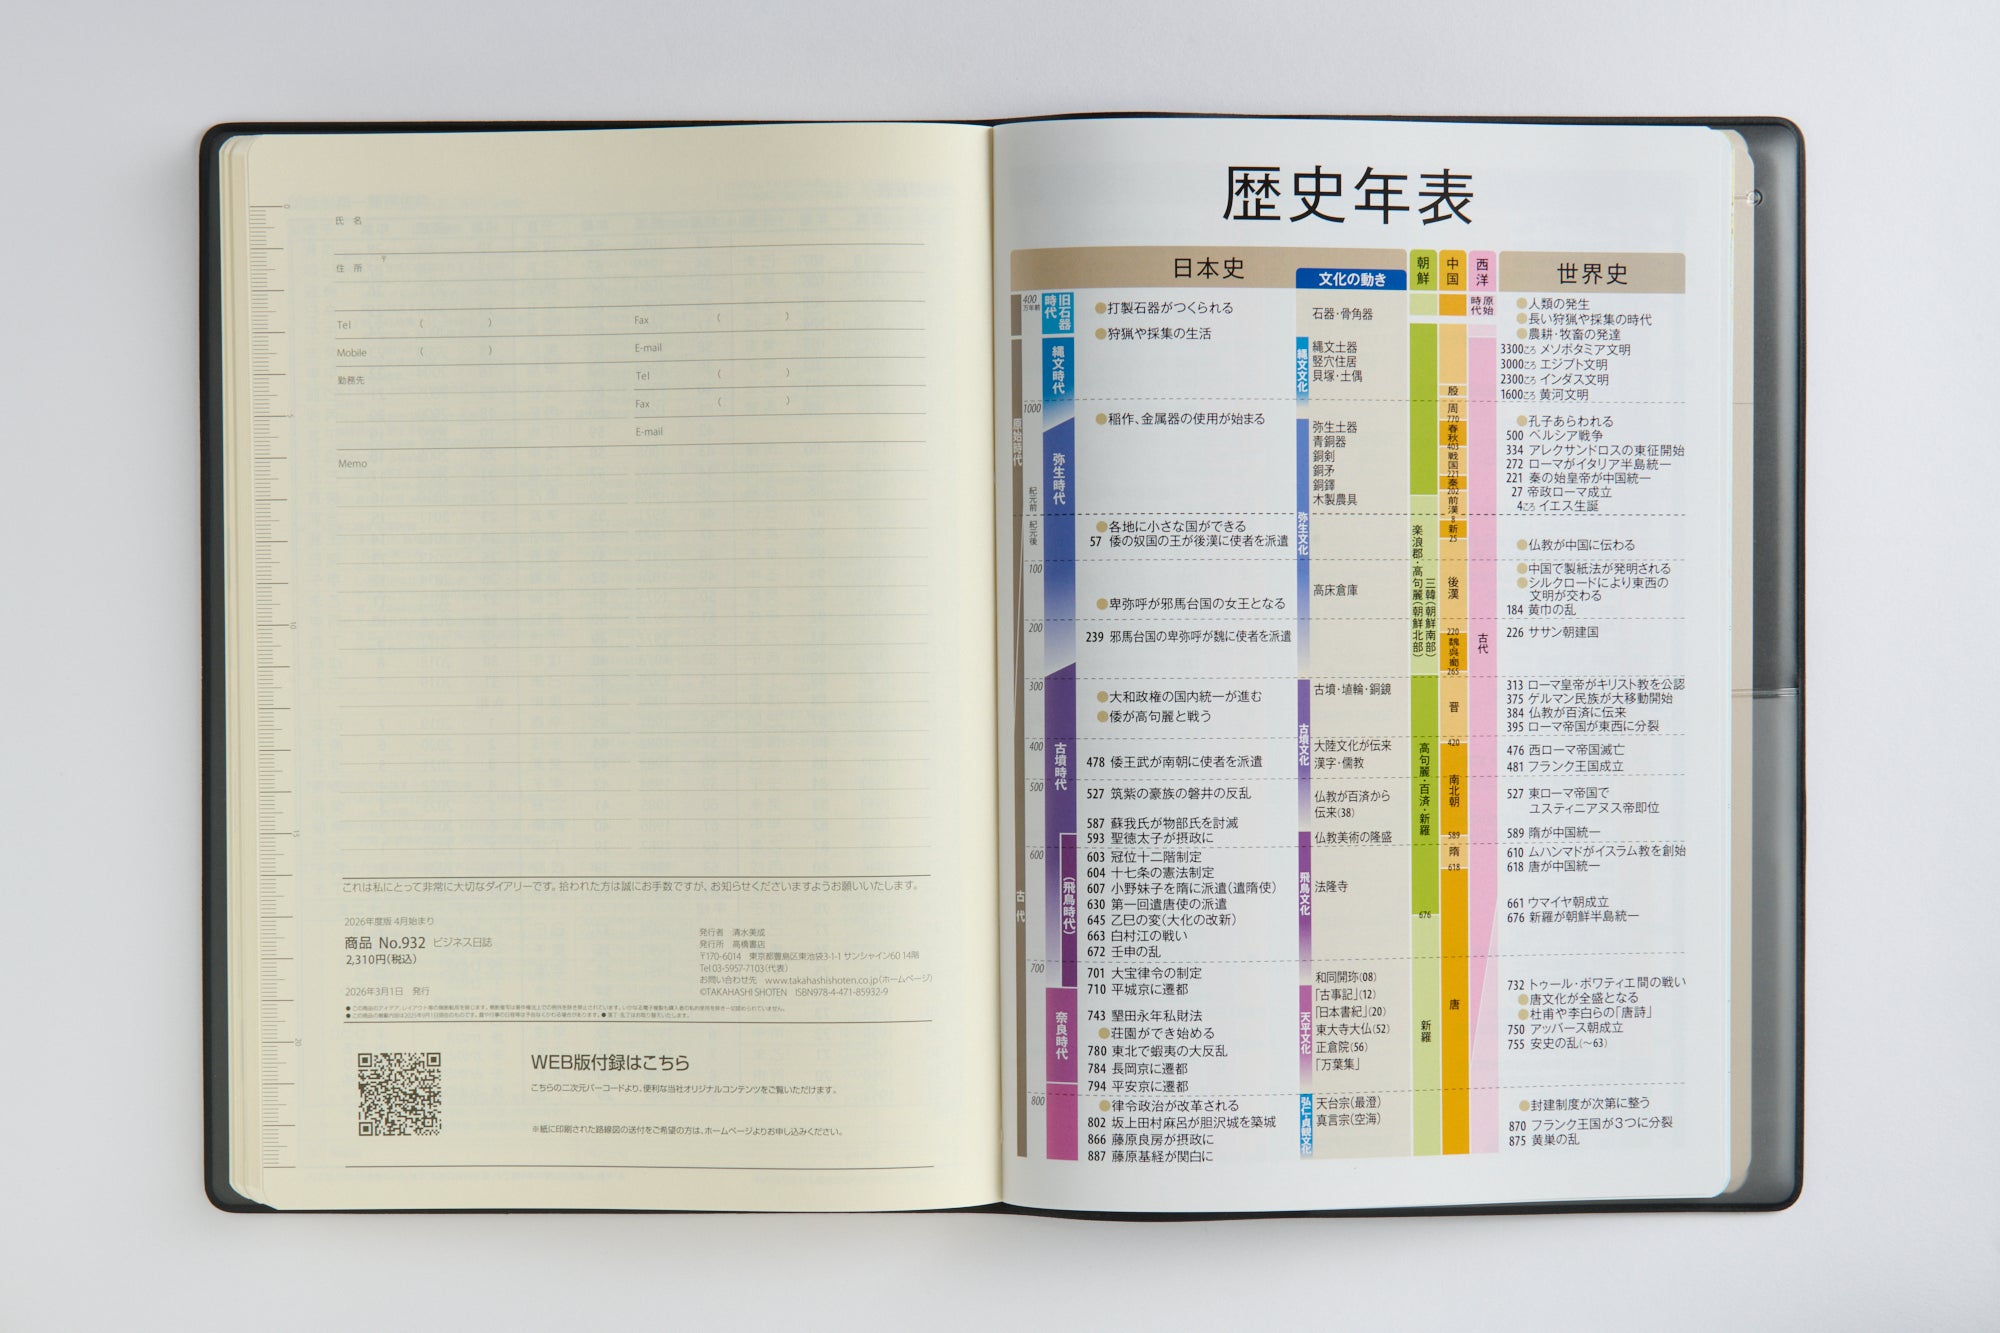 氏 名
住 所
〒
Tel ( )
Fax ( )
Mobile ( )
E-mail
勤務先
Tel ( )
Fax ( )
E-mail
Memo
これは私にとって非常に大切なダイアリーです。拾われた方は誠にお手数ですが、お知らせくださいますようお願いいたします。
2026年度版 4月始まり
商品 No.932 ビジネス日誌
2,310円(税込)
2026年3月1日 発行
発行者 清水美成
発行所 高橋書店
〒170-6014 東京都豊島区東池袋3-1-1 サンシャイン60 14階
Tel 03-5957-7103(代表)
お問い合わせ先 www.takahashishoten.co.jp(ホームページ)
©TAKAHASHI SHOTEN ISBN978-4-471-85932-9
WEB版付録はこちら
こちらの二次元バーコードより、便利な当社オリジナルコンテンツをご覧いただけます。
※紙に印刷された路線図の送付をご希望の方は、ホームページよりお申し込みください。
0
5
10
15
20
歴史年表
日本史
文化の動き
朝鮮
中国
西洋
世界史
400万年前
1000
紀元前
紀元後
100
200
300
400
500
600
700
800
原始時代
古代
旧石器時代
縄文時代
弥生時代
古墳時代
(飛鳥時代)
奈良時代
●打製石器がつくられる
●狩猟や採集の生活
●稲作、金属器の使用が始まる
●各地に小さな国ができる
57 倭の奴国の王が後漢に使者を派遣
●卑弥呼が邪馬台国の女王となる
239 邪馬台国の卑弥呼が魏に使者を派遣
●大和政権の国内統一が進む
●倭が高句麗と戦う
478 倭王武が南朝に使者を派遣
527 筑紫の豪族の磐井の反乱
587 蘇我氏が物部氏を討滅
593 聖徳太子が摂政に
603 冠位十二階制定
604 十七条の憲法制定
607 小野妹子を隋に派遣(遣隋使)
630 第一回遣唐使の派遣
645 乙巳の変(大化の改新)
663 白村江の戦い
672 壬申の乱
701 大宝律令の制定
710 平城京に遷都
743 墾田永年私財法
●荘園ができ始める
780 東北で蝦夷の大反乱
784 長岡京に遷都
794 平安京に遷都
●律令政治が改革される
802 坂上田村麻呂が胆沢城を築城
866 藤原良房が摂政に
887 藤原基経が関白に
縄文文化
弥生文化
古墳文化
飛鳥文化
天平文化
弘仁・貞観文化
石器・骨角器
縄文土器
竪穴住居
貝塚・土偶
弥生土器
青銅器
銅剣
銅矛
銅鐸
木製農具
高床倉庫
古墳・埴輪・銅鏡
大陸文化が伝来
漢字・儒教
仏教が百済から
伝来(38)
仏教美術の隆盛
法隆寺
和同開珎(08)
「古事記」(12)
「日本書紀」(20)
東大寺大仏(52)
正倉院(56)
「万葉集」
天台宗(最澄)
真言宗(空海)
楽浪郡・高句麗(朝鮮北部)
三韓(朝鮮南部)
高句麗・百済・新羅
676
新羅
殷
周
770
春秋
403
戦国
221
秦
202
前漢
8
新
25
後漢
220
魏呉蜀
265
晋
420
南北朝
589
隋
618
唐
原始時代
古代
●人類の発生
●長い狩猟や採集の時代
●農耕・牧畜の発達
3300ごろ メソポタミア文明
3000ごろ エジプト文明
2300ごろ インダス文明
1600ごろ 黄河文明
●孔子あらわれる
500 ペルシア戦争
334 アレクサンドロスの東征開始
272 ローマがイタリア半島統一
221 秦の始皇帝が中国統一
27 帝政ローマ成立
4ごろ イエス生誕
●仏教が中国に伝わる
●中国で製紙法が発明される
●シルクロードにより東西の
文明が交わる
184 黄巾の乱
226 ササン朝建国
313 ローマ皇帝がキリスト教を公認
375 ゲルマン民族が大移動開始
384 仏教が百済に伝来
395 ローマ帝国が東西に分裂
476 西ローマ帝国滅亡
481 フランク王国成立
527 東ローマ帝国で
ユスティニアヌス帝即位
589 隋が中国統一
610 ムハンマドがイスラム教を創始
618 唐が中国統一
661 ウマイヤ朝成立
676 新羅が朝鮮半島統一
732 トゥール・ポワティエ間の戦い
●唐文化が全盛となる
●杜甫や李白らの「唐詩」
750 アッバース朝成立
755 安史の乱(〜63)
●封建制度が次第に整う
870 フランク王国が3つに分裂
875 黄巣の乱